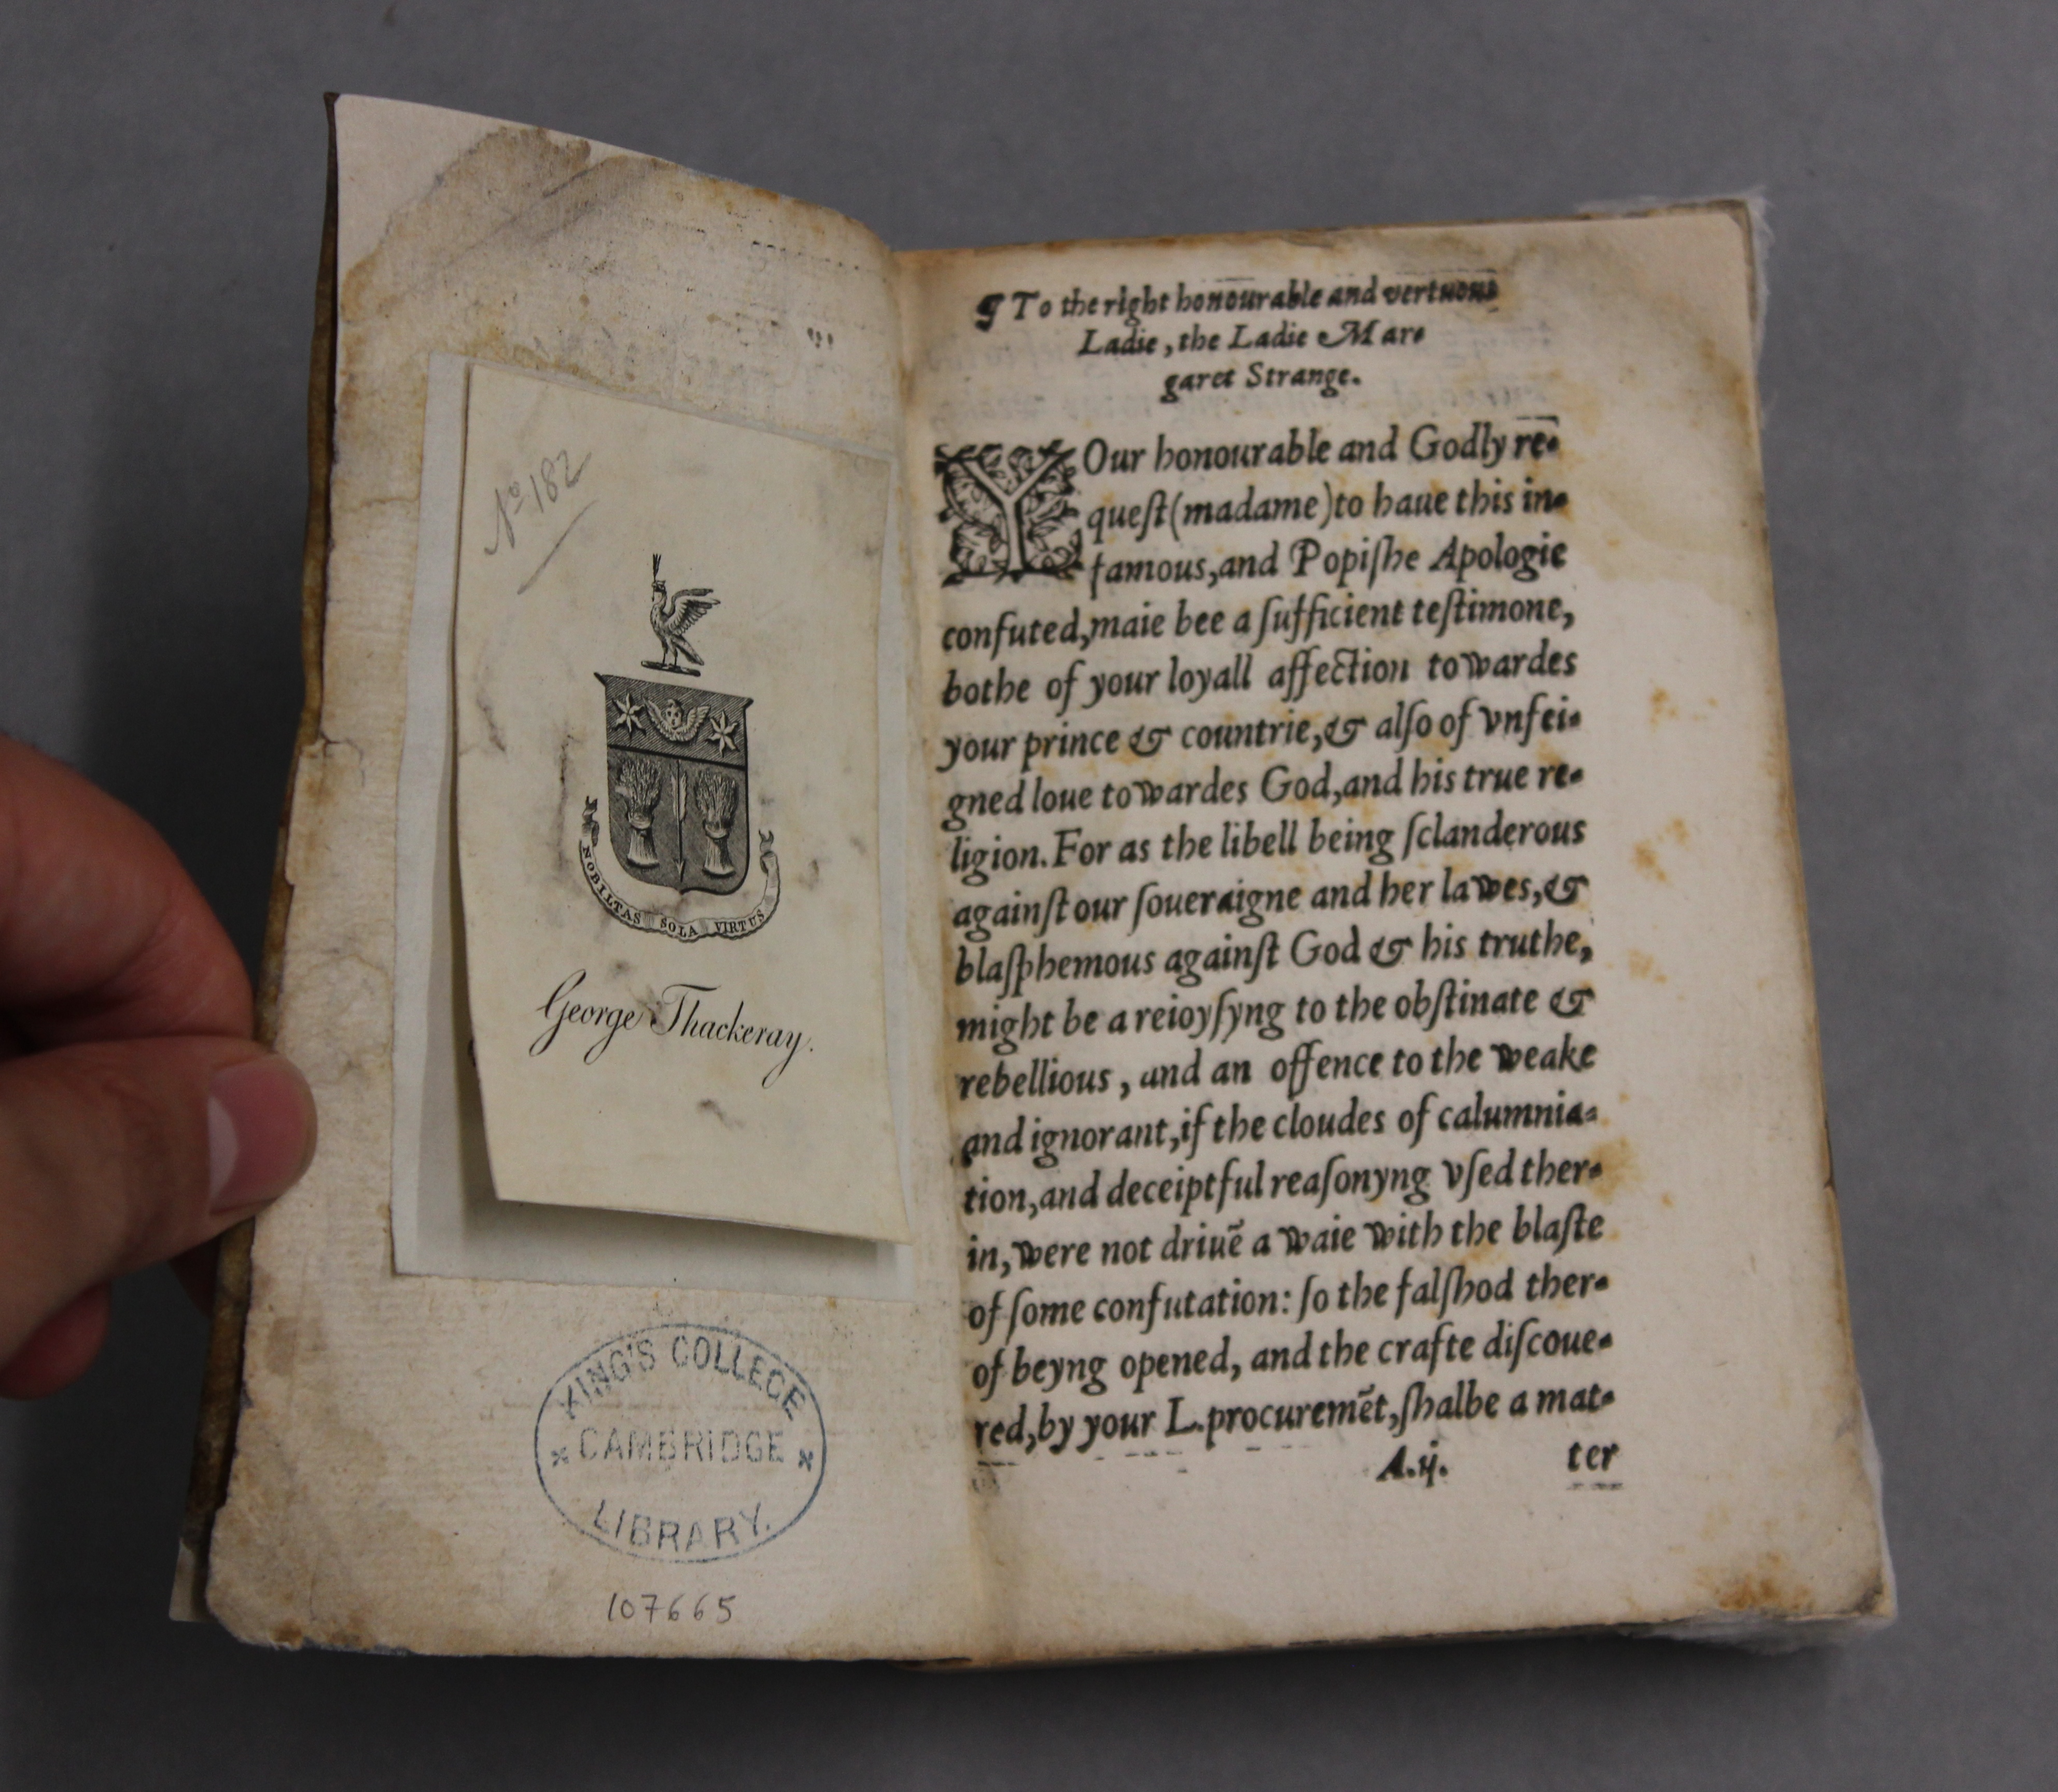 No 182
NOBILTAS SOLA VIRTUS
George Thackeray.
KING'S COLLEGE
CAMBRIDGE
LIBRARY.
107665
¶ To the right honourable and vertuous
Ladie, the Ladie Mar-
garet Strange.
YOur honourable and Godly re-
queſt (madame) to haue this in-
famous, and Popiſhe Apologie
confuted, maie bee a ſufficient teſtimone,
bothe of your loyall affection towardes
your prince & countrie, & alſo of vnfei-
gned loue towardes God, and his true re-
ligion. For as the libell being ſclanderous
againſt our ſoueraigne and her lawes, &
blaſphemous againſt God & his truthe,
might be a reioyſyng to the obſtinate &
rebellious, and an offence to the weake
and ignorant, if the cloudes of calumnia-
tion, and deceiptful reaſonyng vſed ther-
in, were not driuẽ a waie with the blaſte
of ſome confutation: ſo the falſhod ther-
of beyng opened, and the crafte diſcoue-
red, by your L. procuremẽt, ſhalbe a mat-
A.ij. ter